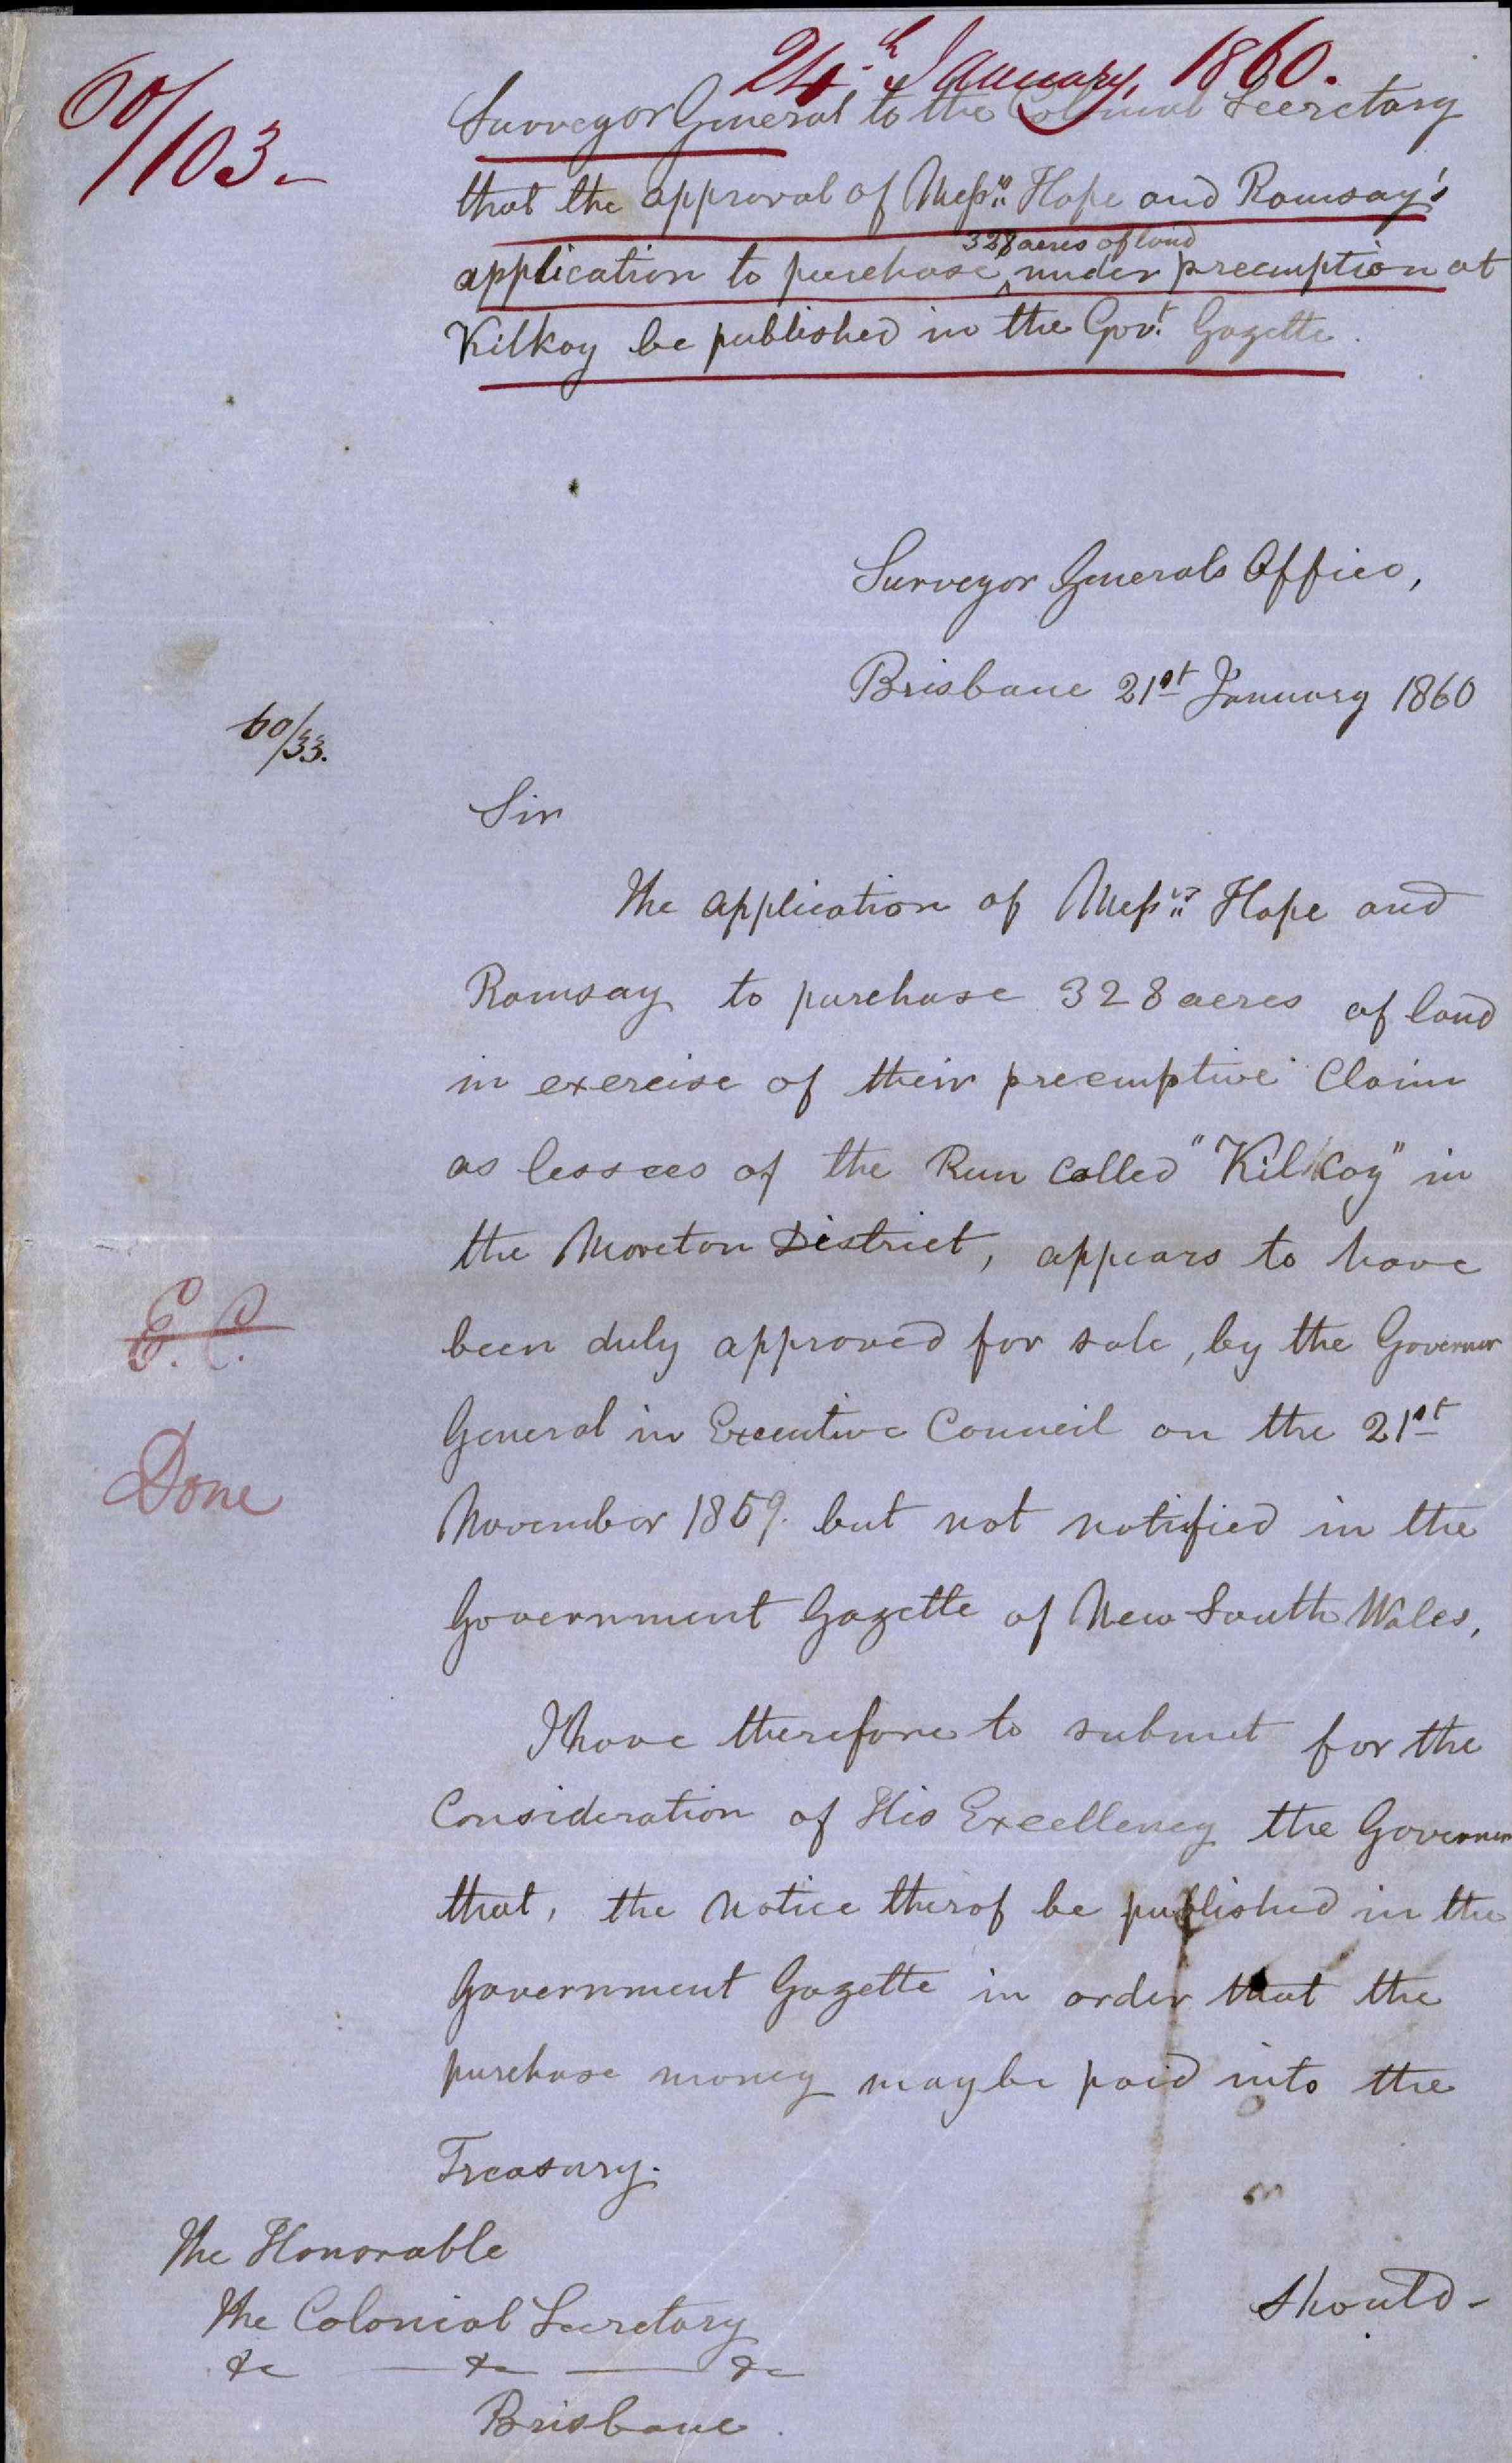 24th January, 1860.
60/103-
Surveyor General to the Colonial Secretary
that the approval of Messrs Hope and Ramsay's
328 acres of land
application to purchase ^ under preemption at
Kilkoy be published in the Govt. Gazette.
Surveyor Generals Office,
Brisbane 21st January 1860
60/33.
Sir
The application of Messrs Hope and
Ramsay to purchase 328 acres of land
in exercise of their preemptive Claim
as lessees of the Run Called "Kilkoy" in
the Moreton District, appears to have
been duly approved for sale, by the Governor
General in Executive Council on the 21st
November 1859. but not notified in the
Government Gazette of New South Wales,
E.C.
Done
I have therefore to submit for the
Consideration of His Excellency the Governor
that, the Notice therof be published in the
Government Gazette in order that the
purchase money may be paid into the
Treasury.
The Honorable
The Colonial Secretary
&c — &c — &c
Brisbane.
Should-